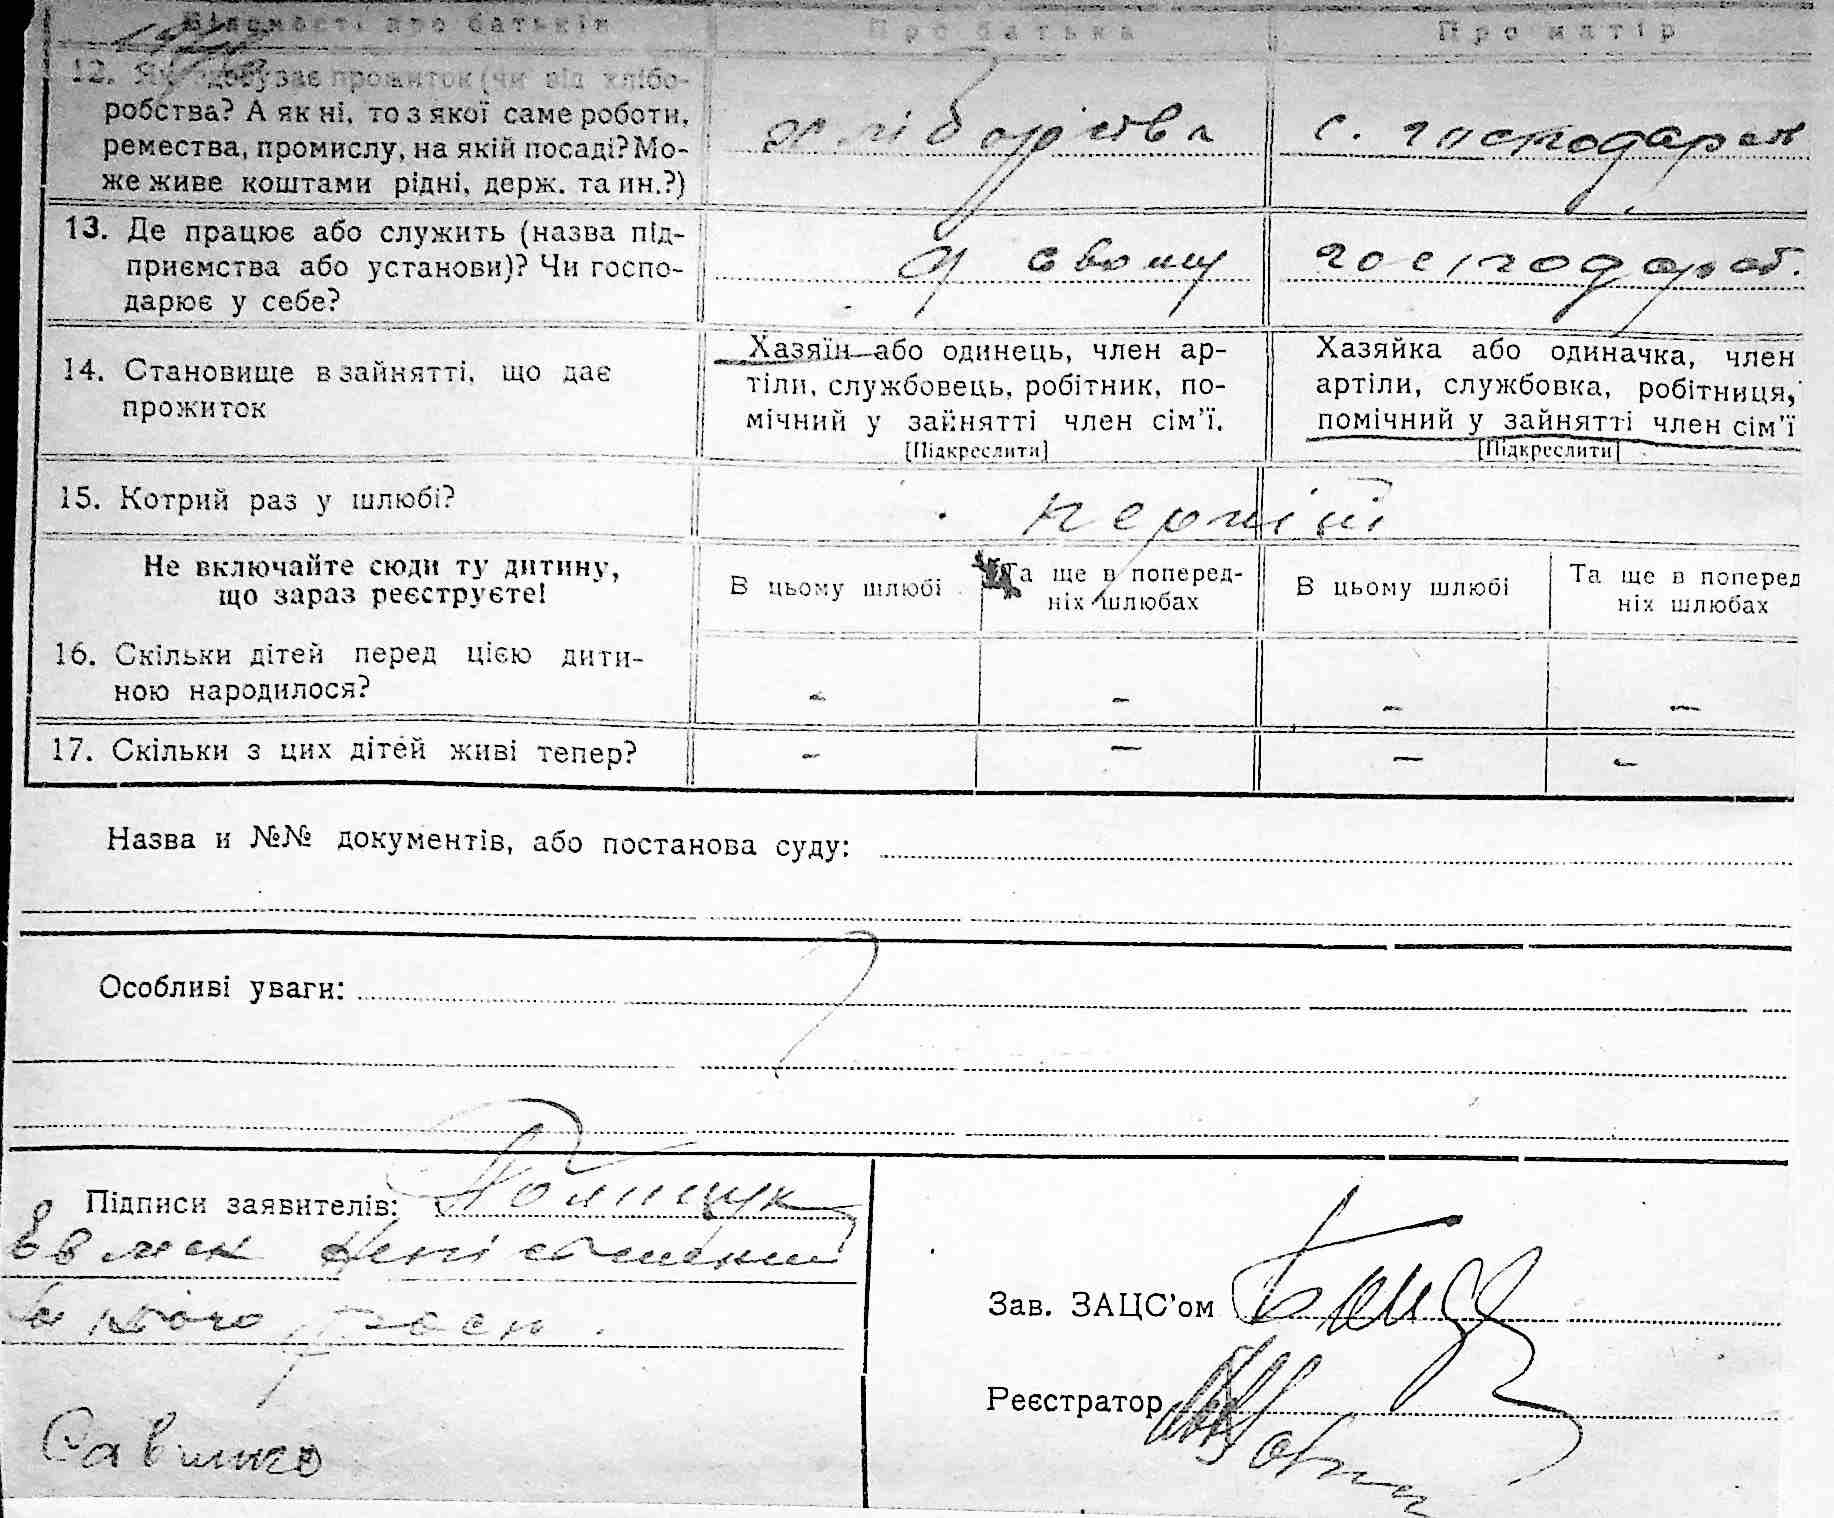 Відомості про батьків Про батька Про матір
12. Як здобуває прожиток (чи від хлібо-
робства? А як ні, то з якої саме роботи,
ремества, промислу, на якій посаді? Мо-
же живе коштами рідні, держ. та ин.?)
хліборобства с. господарст
13. Де працює або служить (назва під-
приємства або установи)? Чи госпо-
дарює у себе?
у свому господарст.
14. Становище в зайнятті, що дає
прожиток
Хазяїн або одинець, член ар-
тіли, службовець, робітник, по-
мічний у зайнятті член сім'ї.
[Підкреслити]
Хазяйка або одиначка, член
артіли, службовка, робітниця,
помічний у зайнятті член сім'ї
[Підкреслити]
15. Котрий раз у шлюбі?
перший
Не включайте сюди ту дитину,
що зараз реєструєте!
В цьому шлюбі
Та ще в поперед-
ніх шлюбах
В цьому шлюбі
Та ще в поперед
ніх шлюбах
16. Скільки дітей перед цією дити-
ною народилося?
– – – –
17. Скільки з цих дітей живі тепер?
– – – –
Назва и №№ документів, або постанова суду:
Особливі уваги:
Підписи заявителів: Поліщук
за його
Савинко
Зав. ЗАЦС'ом
Реєстратор